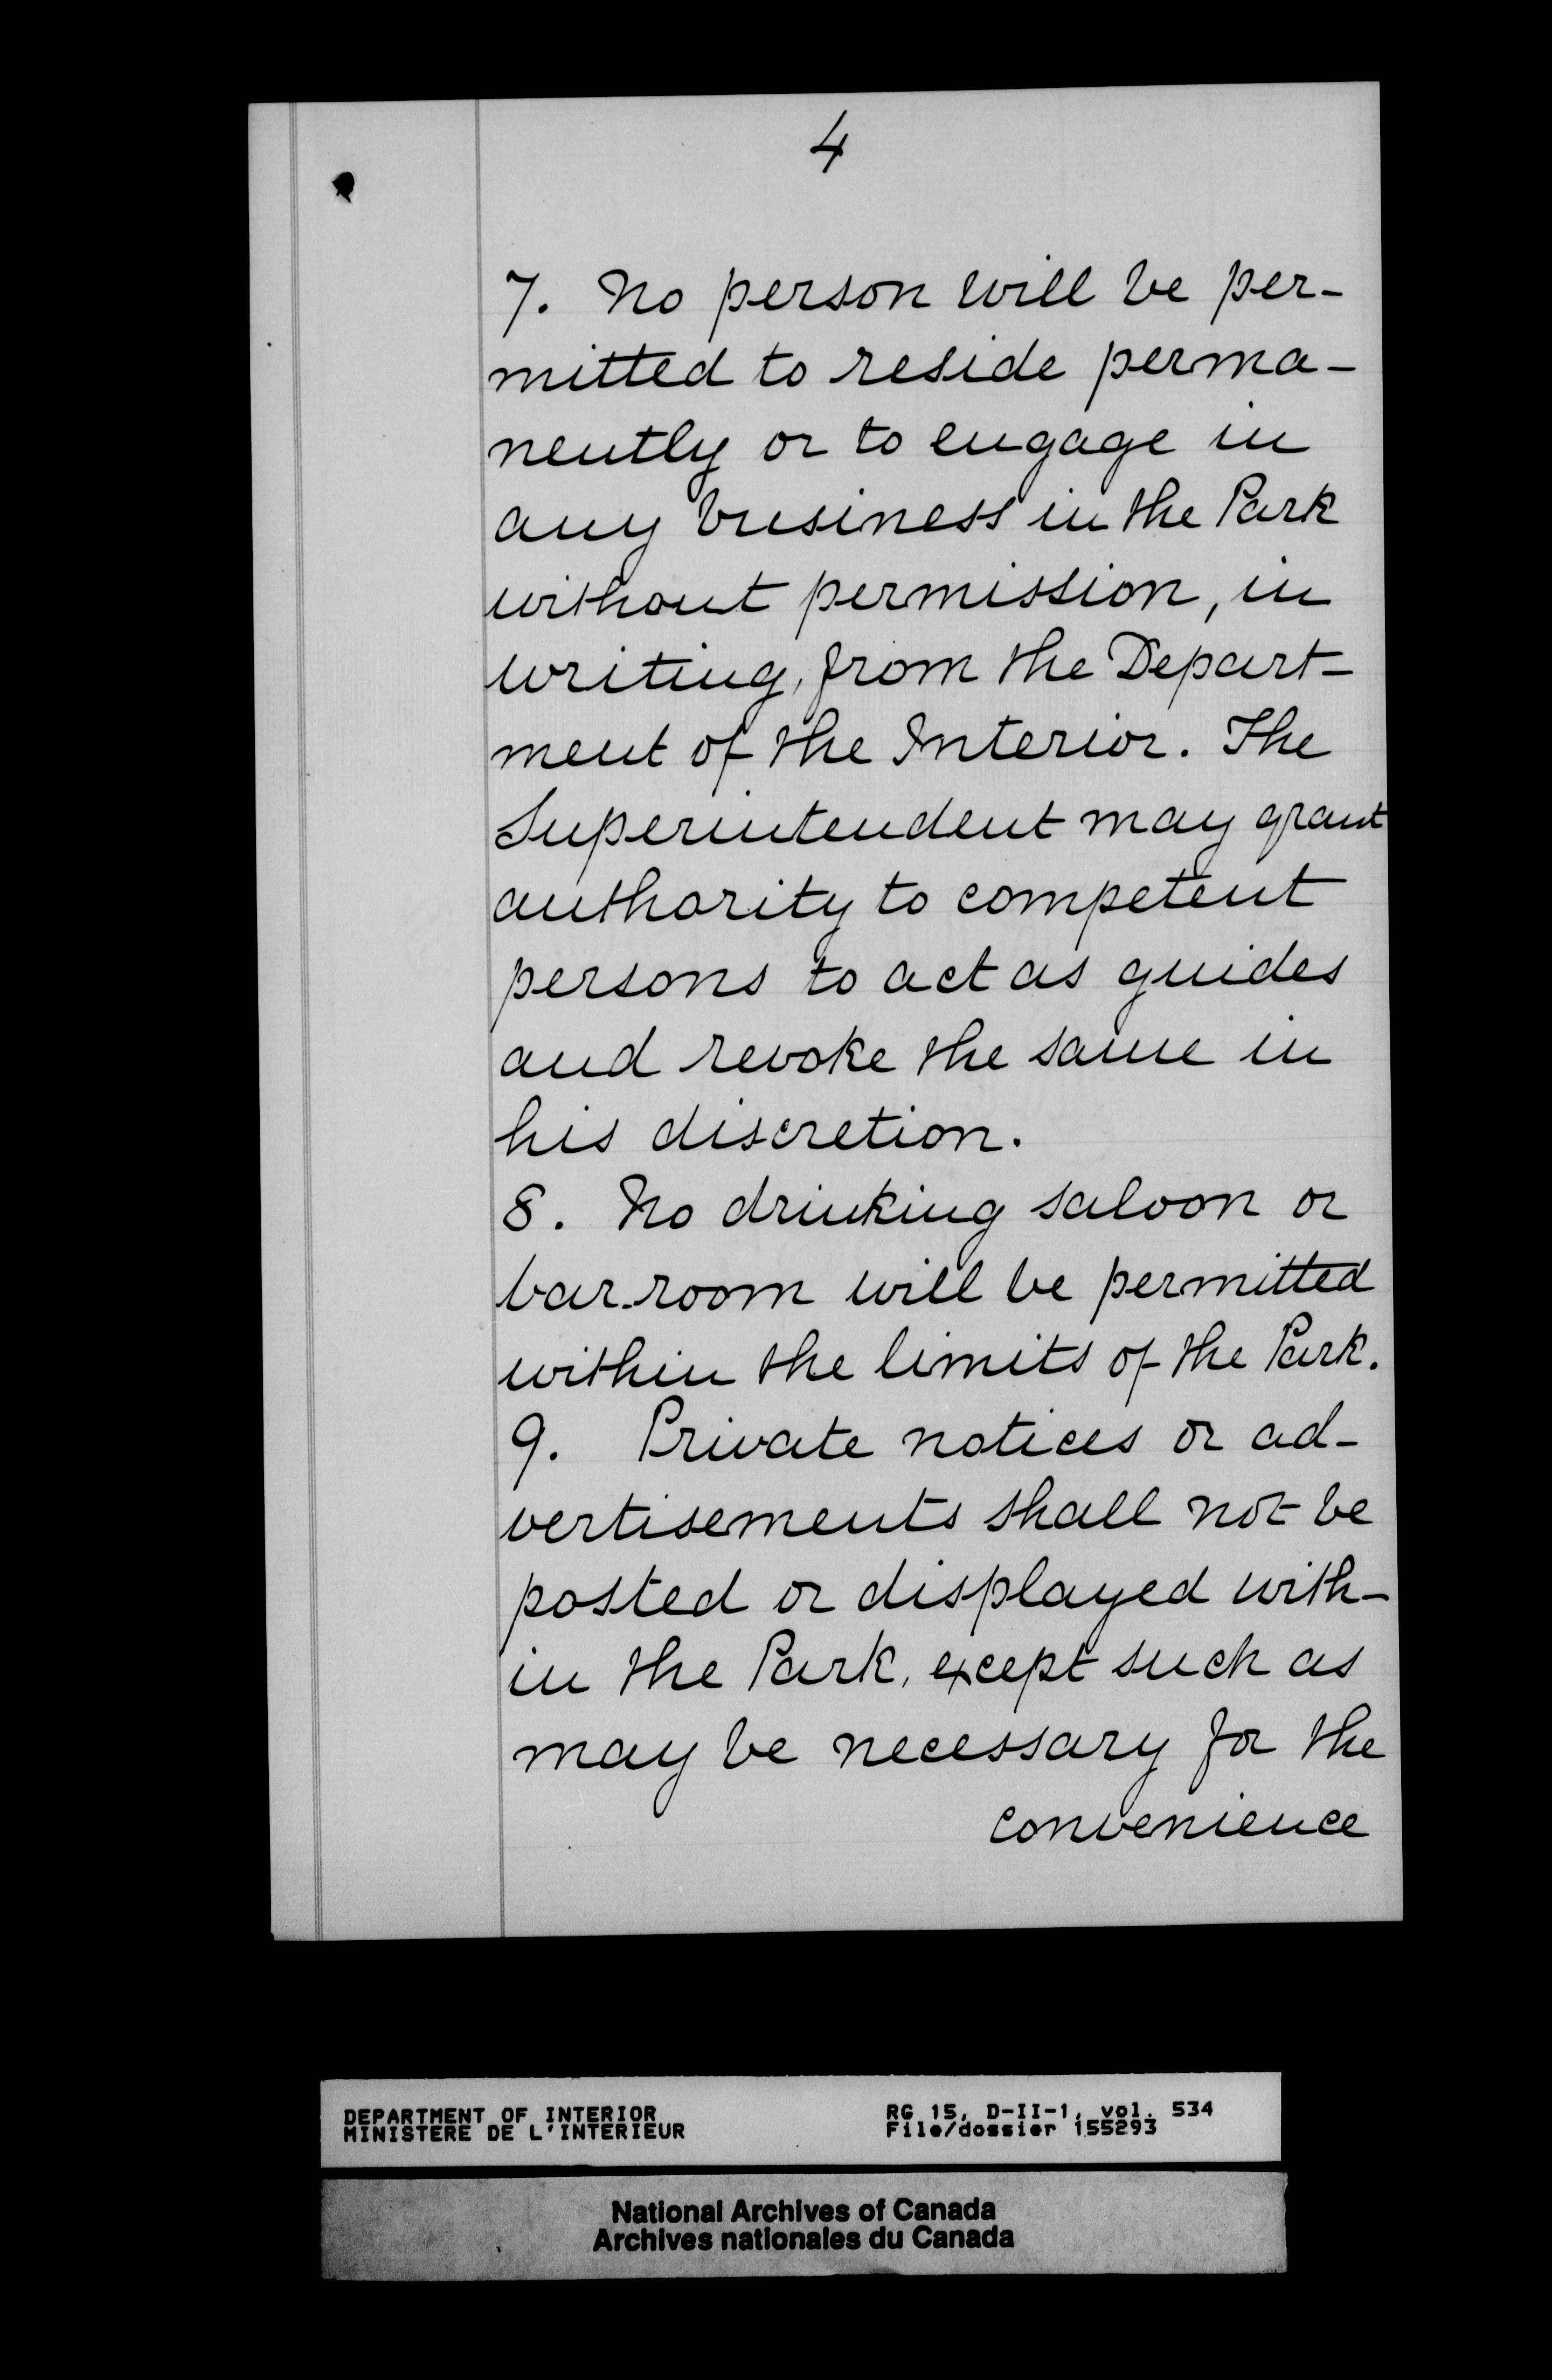 4
7. No person will be per-
mitted to reside perma-
nently or to engage in
any business in the Park
without permission, in
writing, from the Depart-
ment of the Interior. The
Superintendent may grant
authority to competent
persons to act as guides
and revoke the same in
his discretion.
8. No drinking saloon or
bar-room will be permitted
within the limits of the Park.
9. Private notices or ad-
vertisements shall not be
posted or displayed with-
in the Park, except such as
may be necessary for the
convenience
DEPARTMENT OF INTERIOR RG 15, D-II-1, vol. 534
MINISTERE DE L'INTERIEUR File/dossier 155293
National Archives of Canada
Archives nationales du Canada